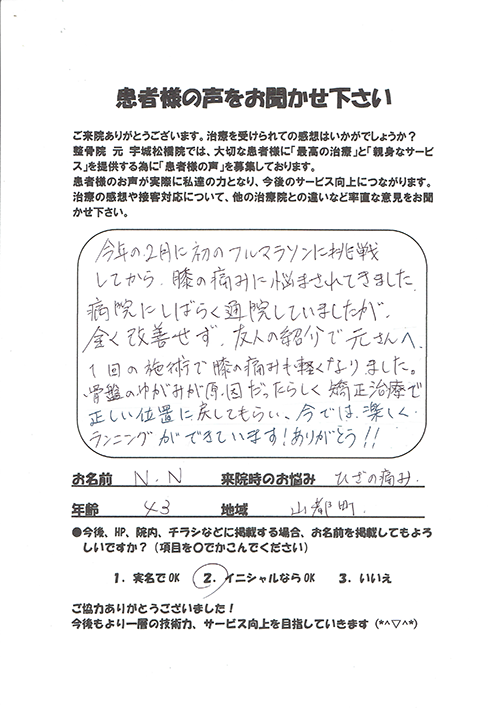 患者様の声をお聞かせ下さい
ご来院ありがとうございます。治療を受けられての感想はいかがでしょうか？
整骨院 元 宇城松橋院では、大切な患者様に「最高の治療」と「親身なサービ
ス」を提供する為に「患者様の声」を募集しております。
患者様のお声が実際に私達の力となり、今後のサービス向上につながります。
治療の感想や接客対応について、他の治療院との違いなど率直な意見をお聞
かせ下さい。
今年の2月に初のフルマラソンに挑戦
してから、膝の痛みに悩まされてきました
病院にしばらく通院していましたが、
全く改善せず、友人の紹介で元さんへ、
1回の施術で膝の痛みも軽くなりました。
骨盤のゆがみが原因だったらしく矯正治療で
正しい位置に戻してもらい、今では、楽しく
ランニングができています!ありがとう!!
お名前 N.N 来院時のお悩み ひざの痛み.
年齢 43 地域 山都町.
●今後、HP、院内、チラシなどに掲載する場合、お名前を掲載してもよろ
しいですか？（項目を〇でかこんでください）
1．実名でOK 2．イニシャルならOK 3．いいえ
ご協力ありがとうございました！
今後もより一層の技術力、サービス向上を目指していきます (*^▽^*)